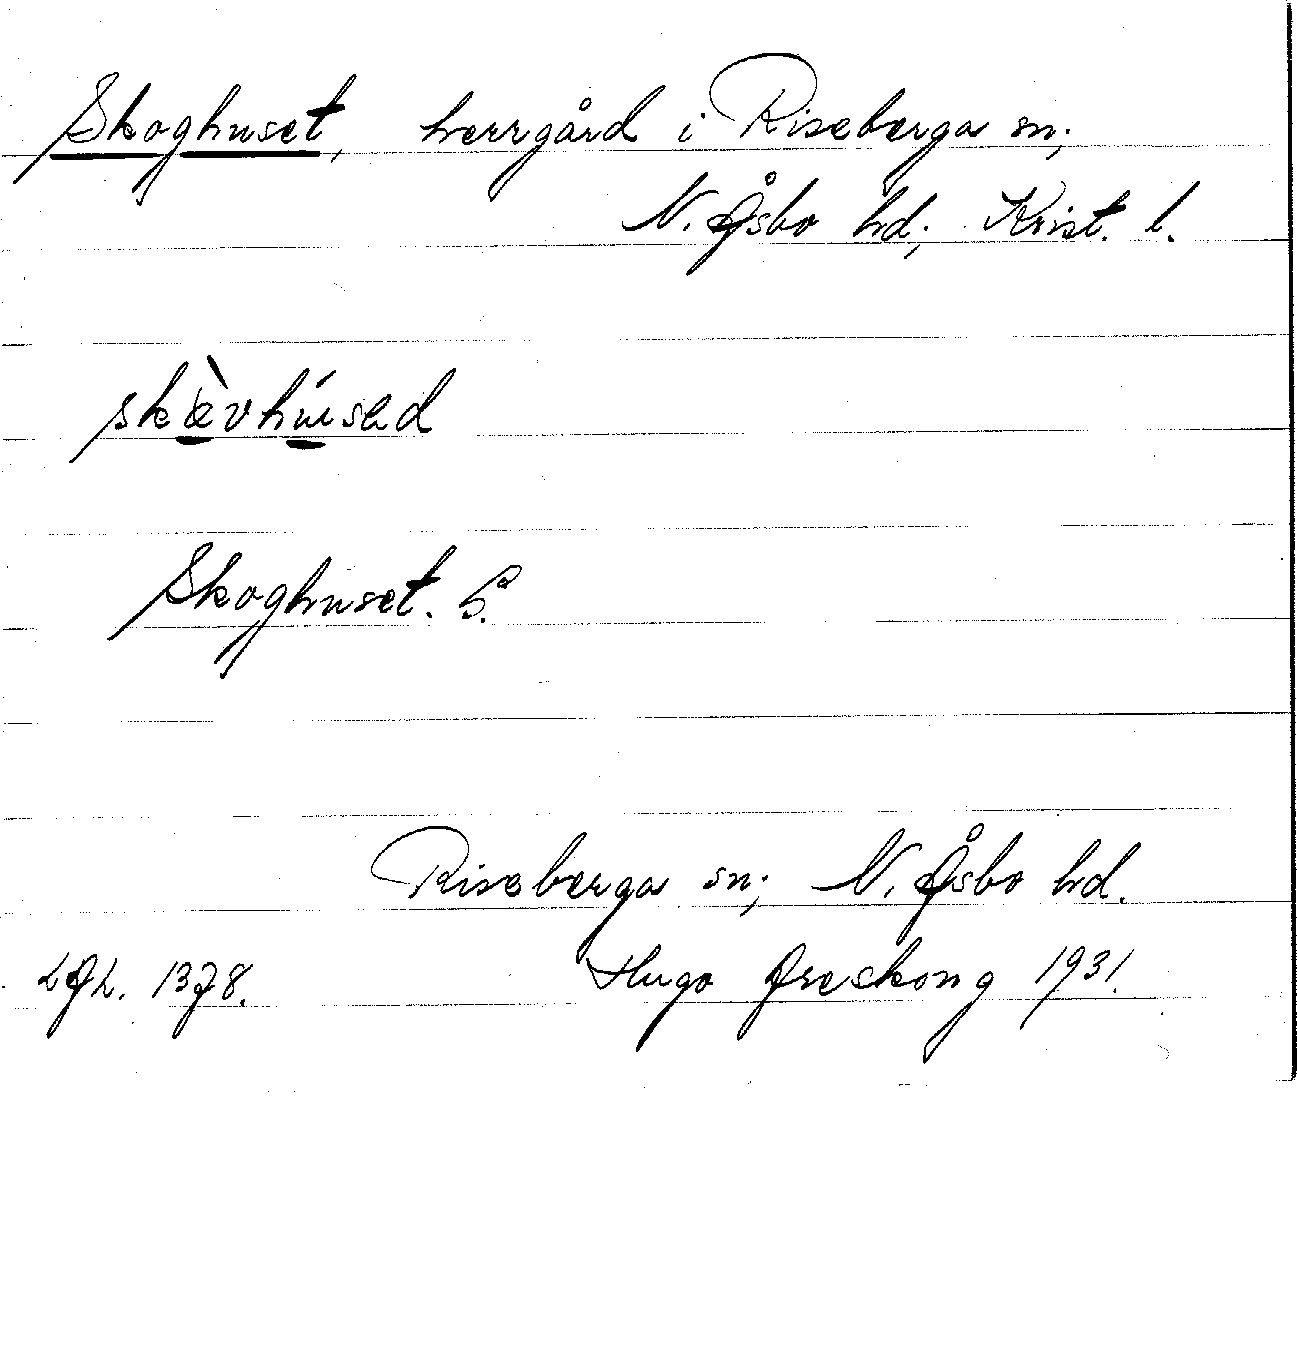 Skoghuset, herrgård i Riseberga sn;
N. Åsbo hd; Krist. l.
skæ̀vhúsəd
Skoghuset. S.
Riseberga sn; N. Åsbo hd.
LAL. 1378. Hugo Areskoug 1931.